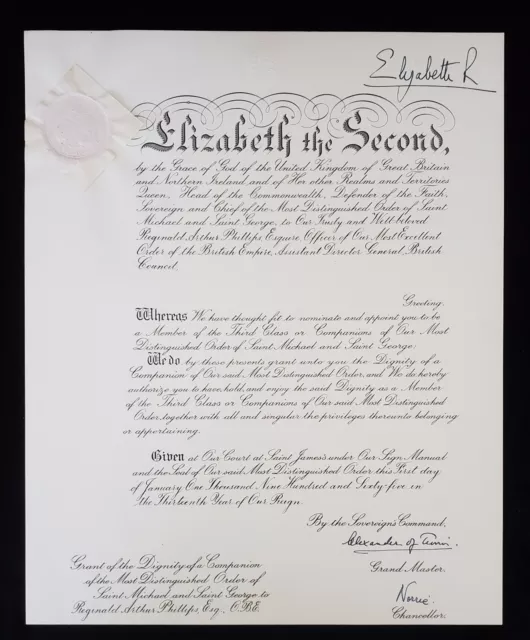 Elizabeth R
Elizabeth the Second,
by the Grace of God of the United Kingdom of Great Britain
and Northern Ireland and of Her other Realms and Territories
Queen, Head of the Commonwealth, Defender of the Faith,
Sovereign and Chief of the Most Distinguished Order of Saint
Michael and Saint George, to Our Trusty and Well-beloved
Reginald Arthur Phillips Esquire Officer of Our Most Excellent
Order of the British Empire, Assistant Director General, British
Council,
Greeting.
Whereas We have thought fit to nominate and appoint you to be
a Member of the Third Class or Companions of Our Most
Distinguished Order of Saint Michael and Saint George;
We do by these presents grant unto you the Dignity of a
Companion of Our said Most Distinguished Order, and We do hereby
authorize you to have, hold, and enjoy the said Dignity as a Member
of the Third Class or Companions of Our said Most Distinguished
Order, together with all and singular the privileges thereunto belonging
or appertaining.
Given at Our Court at Saint James's under Our Sign Manual
and the Seal of Our said Most Distinguished Order this First day
of January One Thousand Nine Hundred and Sixty-five in
the Thirteenth Year of Our Reign.
By the Sovereign's Command,
Alexander of Tunis.
Grand Master.
Grant of the Dignity of a Companion
of the Most Distinguished Order of
Saint Michael and Saint George to
Reginald Arthur Phillips, Esq., O.B.E.
Chancellor.